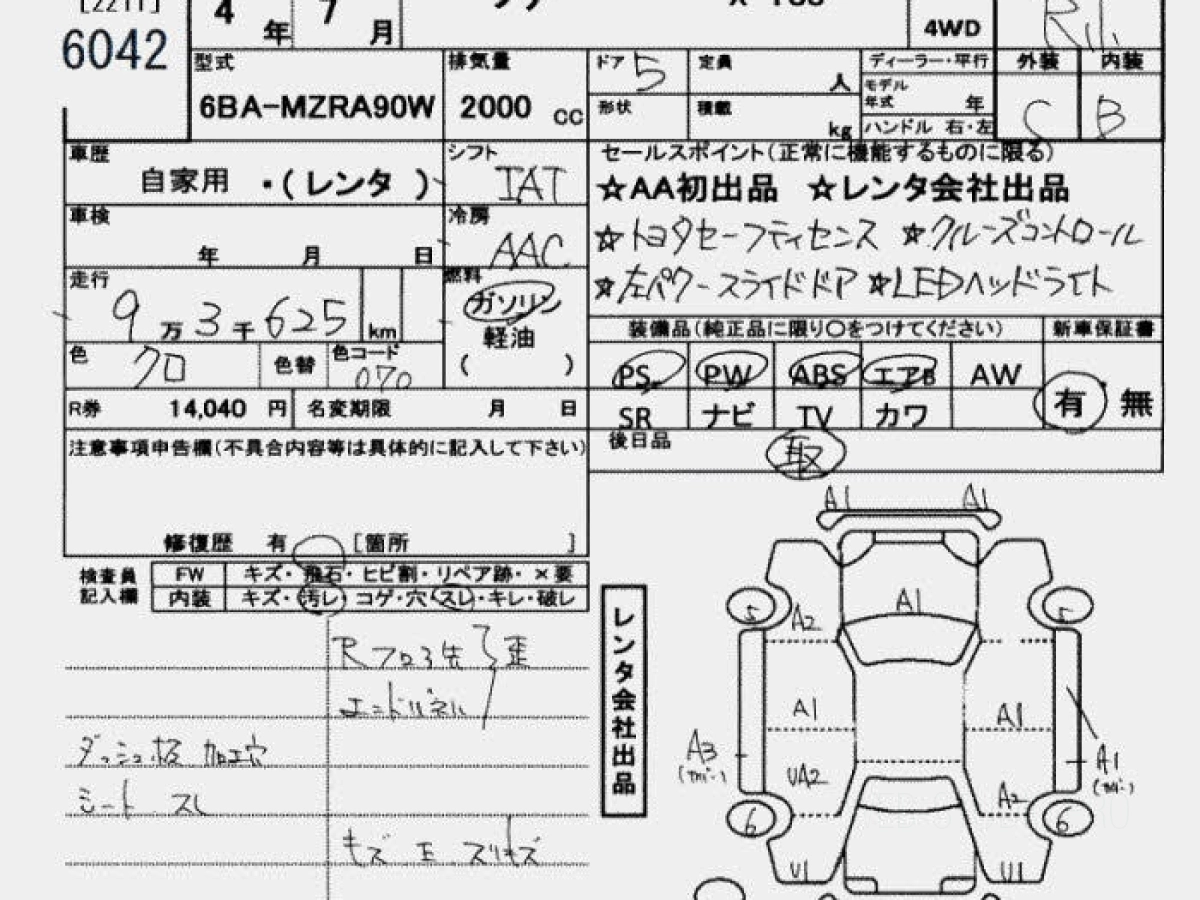 [2211]
6042
4 年 7 月
4WD
型式 6BA-MZRA90W
排気量 2000 cc
ドア 5
形状
定員 人
積載 kg
ディーラー・平行
モデル年式 年
ハンドル 右・左
外装 内装
C B
車歴 自家用 ・(レンタ)
シフト IAT
セールスポイント(正常に機能するものに限る)
☆AA初出品 ☆レンタ会社出品
☆トヨタセーフティセンス ☆クルーズコントロール
☆左パワースライドドア ☆LEDヘッドライト
車検 年 月 日
冷房 AAC
走行 9万3千625 km
燃料 ガソリン
軽油
( )
色 クロ 色替 色コード 070
装備品(純正品に限り○をつけてください) 新車保証書
PS PW ABS エアB AW
SR ナビ TV カワ
有・無
R券 14,040 円 名変期限 月 日
後日品 取
注意事項申告欄(不具合内容等は具体的に記入して下さい)
修復歴 有 [箇所 ]
検査員記入欄
FW キズ・飛石・ヒビ割・リペア跡・×要
内装 キズ・汚レ・コゲ・穴・スレ・キレ・破レ
Rフロア先 歪
エンドパネル
ダッシュ板 加工穴
シート スレ
レンタ会社出品
A1 A1
5 5
A2 A1
A1 A1
A3 (カバー) A1 (カバー)
UA2 A2
6 6
U1 U1